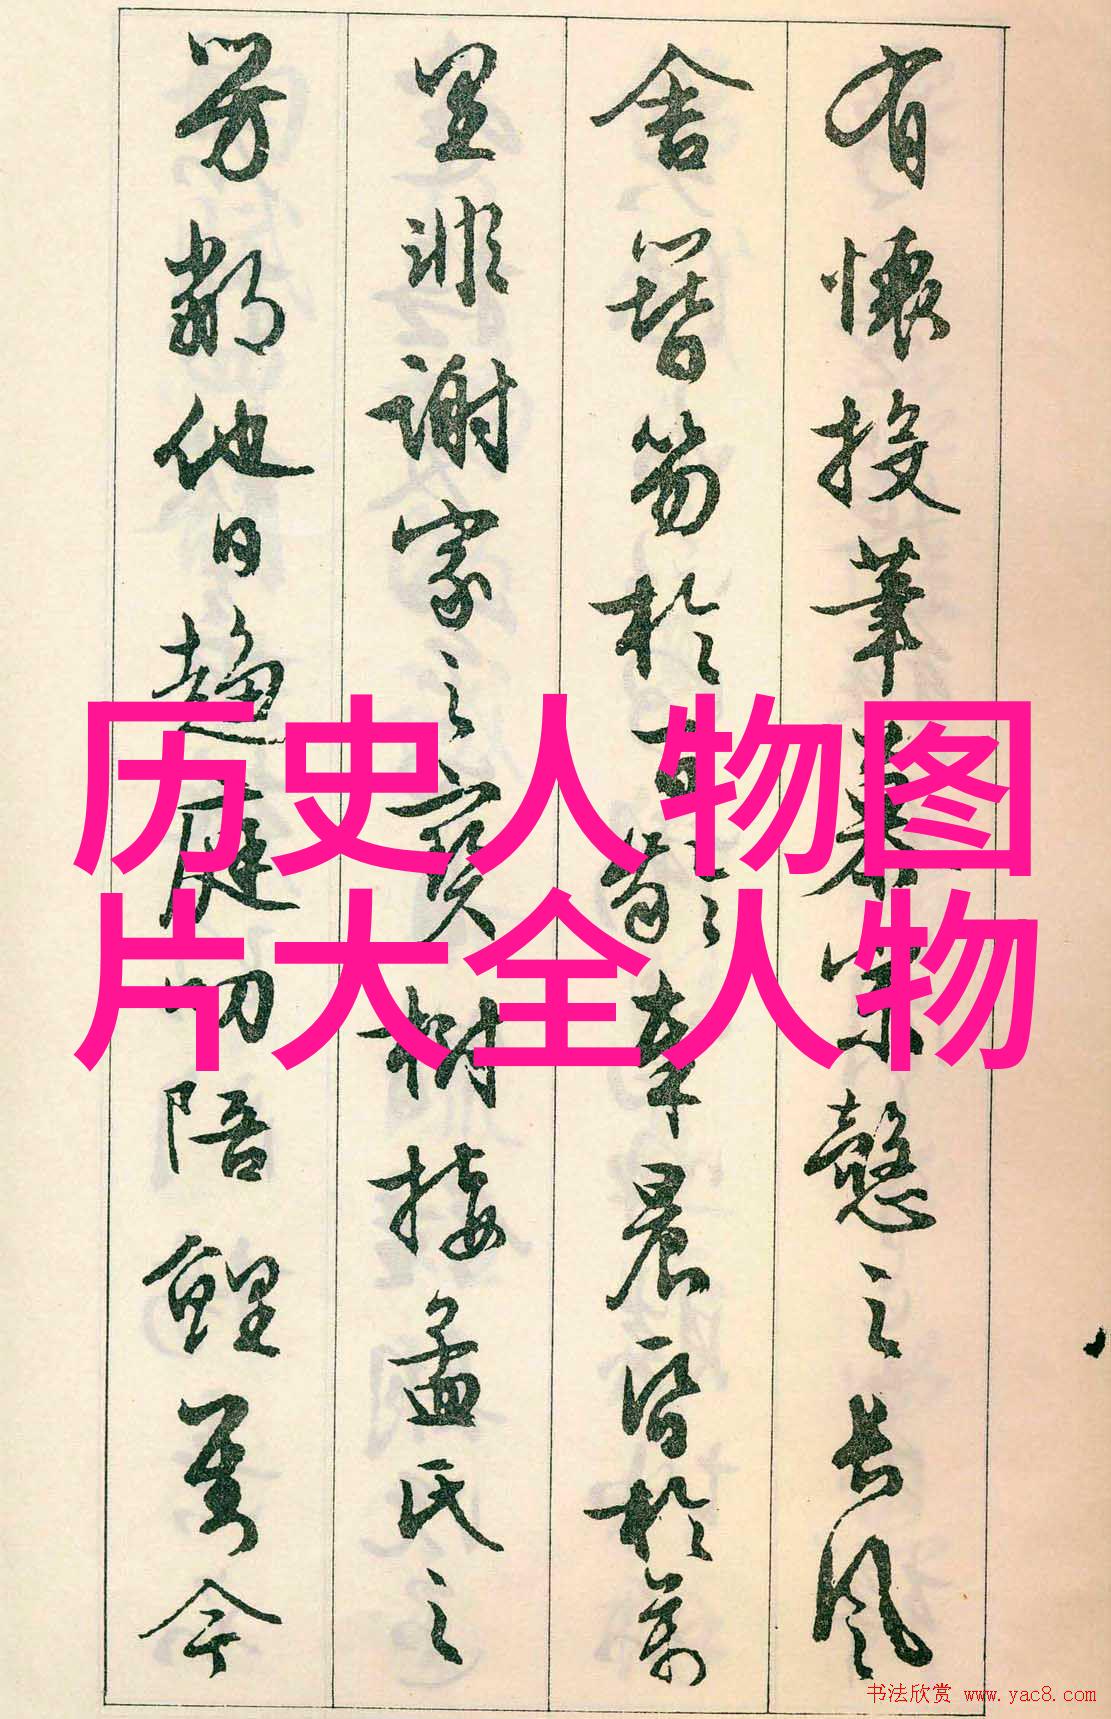 有懷投筆慕宗慤之長風
舍簪笏於百齡奉晨昏於萬
里非謝家之寶樹接孟氏之
芳鄰他日趨庭叨陪鯉對今
历史人物图
片大全人物
书法欣赏 www.yac8.com